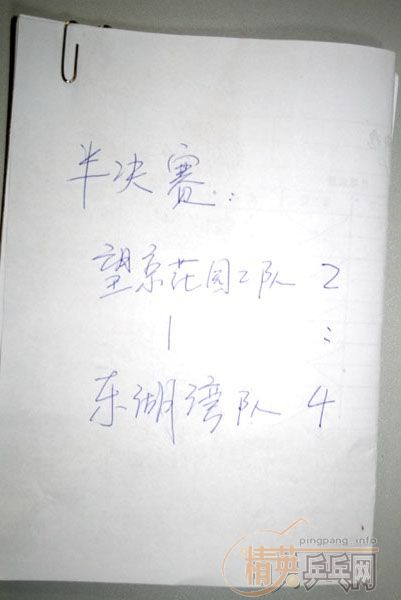 半决赛:
望京花园二队 2
| :
东湖湾队 4
pingpang.info
精英乒乓网